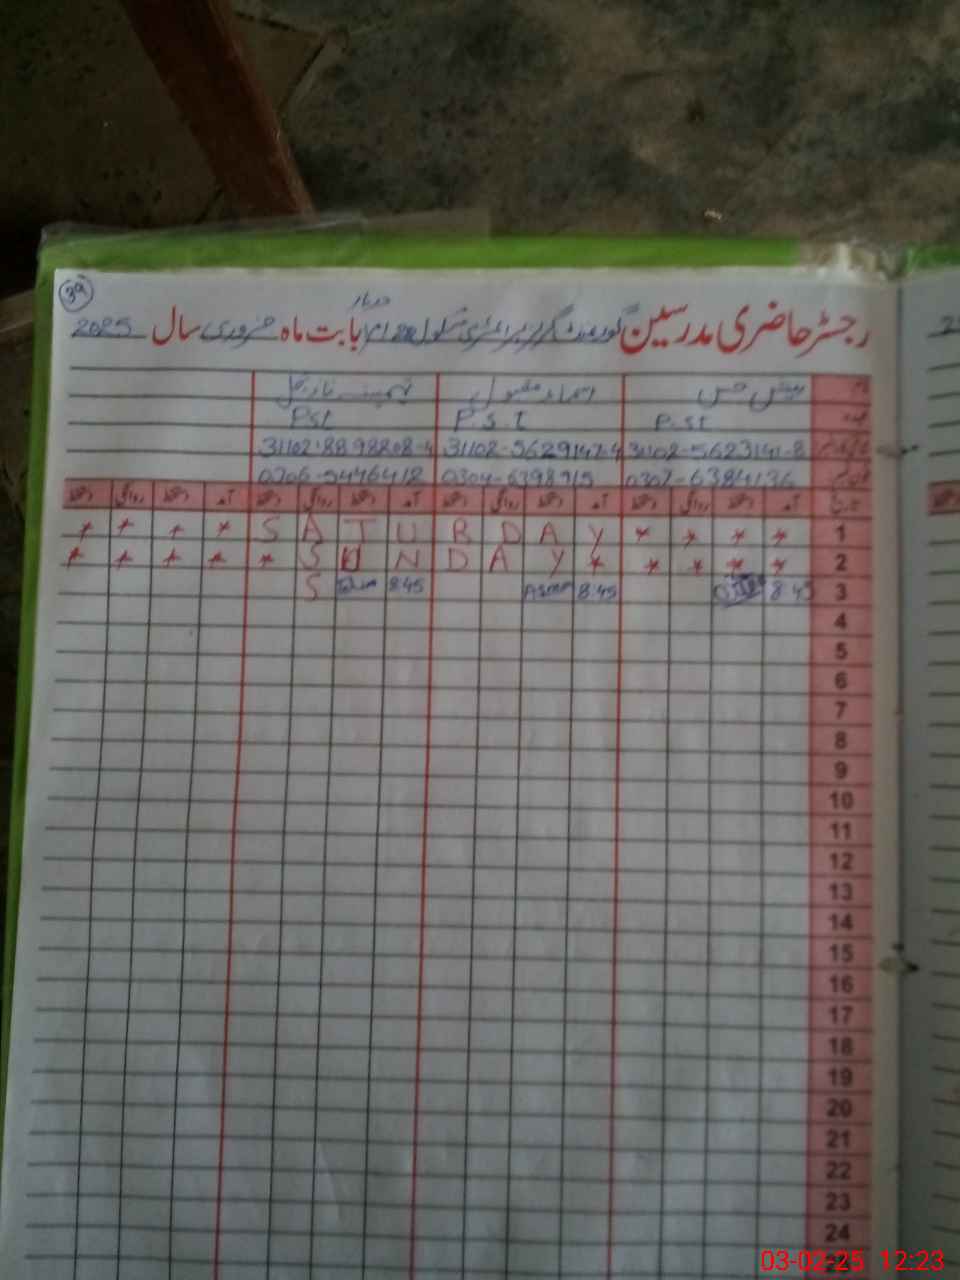 39
رجسٹر حاضری مدرسین گورنمنٹ گرلز پرائمری سکول بابت ماہ فروری سال 2025
نام
Pst P.S.T P.ST
31102-8898808-4 31102-5629147-4 31102-5623141-8
0306-5446412 0304-6398915 0307-6384136
آمد دستخط روانگی دستخط آمد دستخط روانگی دستخط آمد دستخط روانگی دستخط آمد دستخط روانگی دستخط تاریخ
* * * * S A T U R D A Y * * * * 1
* * * * * S U N D A Y * * * * * 2
S 8:45 Asma 8:45 8:45 3
4
5
6
7
8
9
10
11
12
13
14
15
16
17
18
19
20
21
22
23
24
03-02-25 12:23